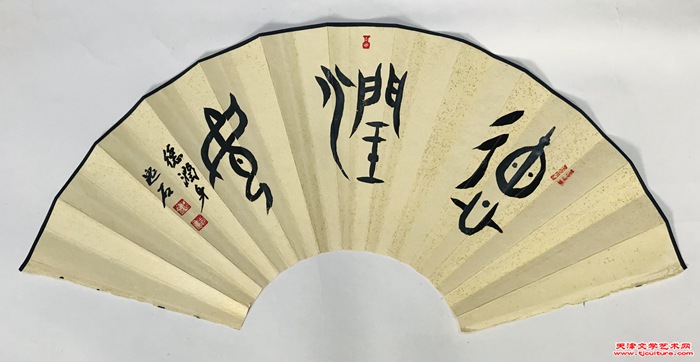 德润身
德潤身
迎石
天津文学艺术网
www.tjculture.com